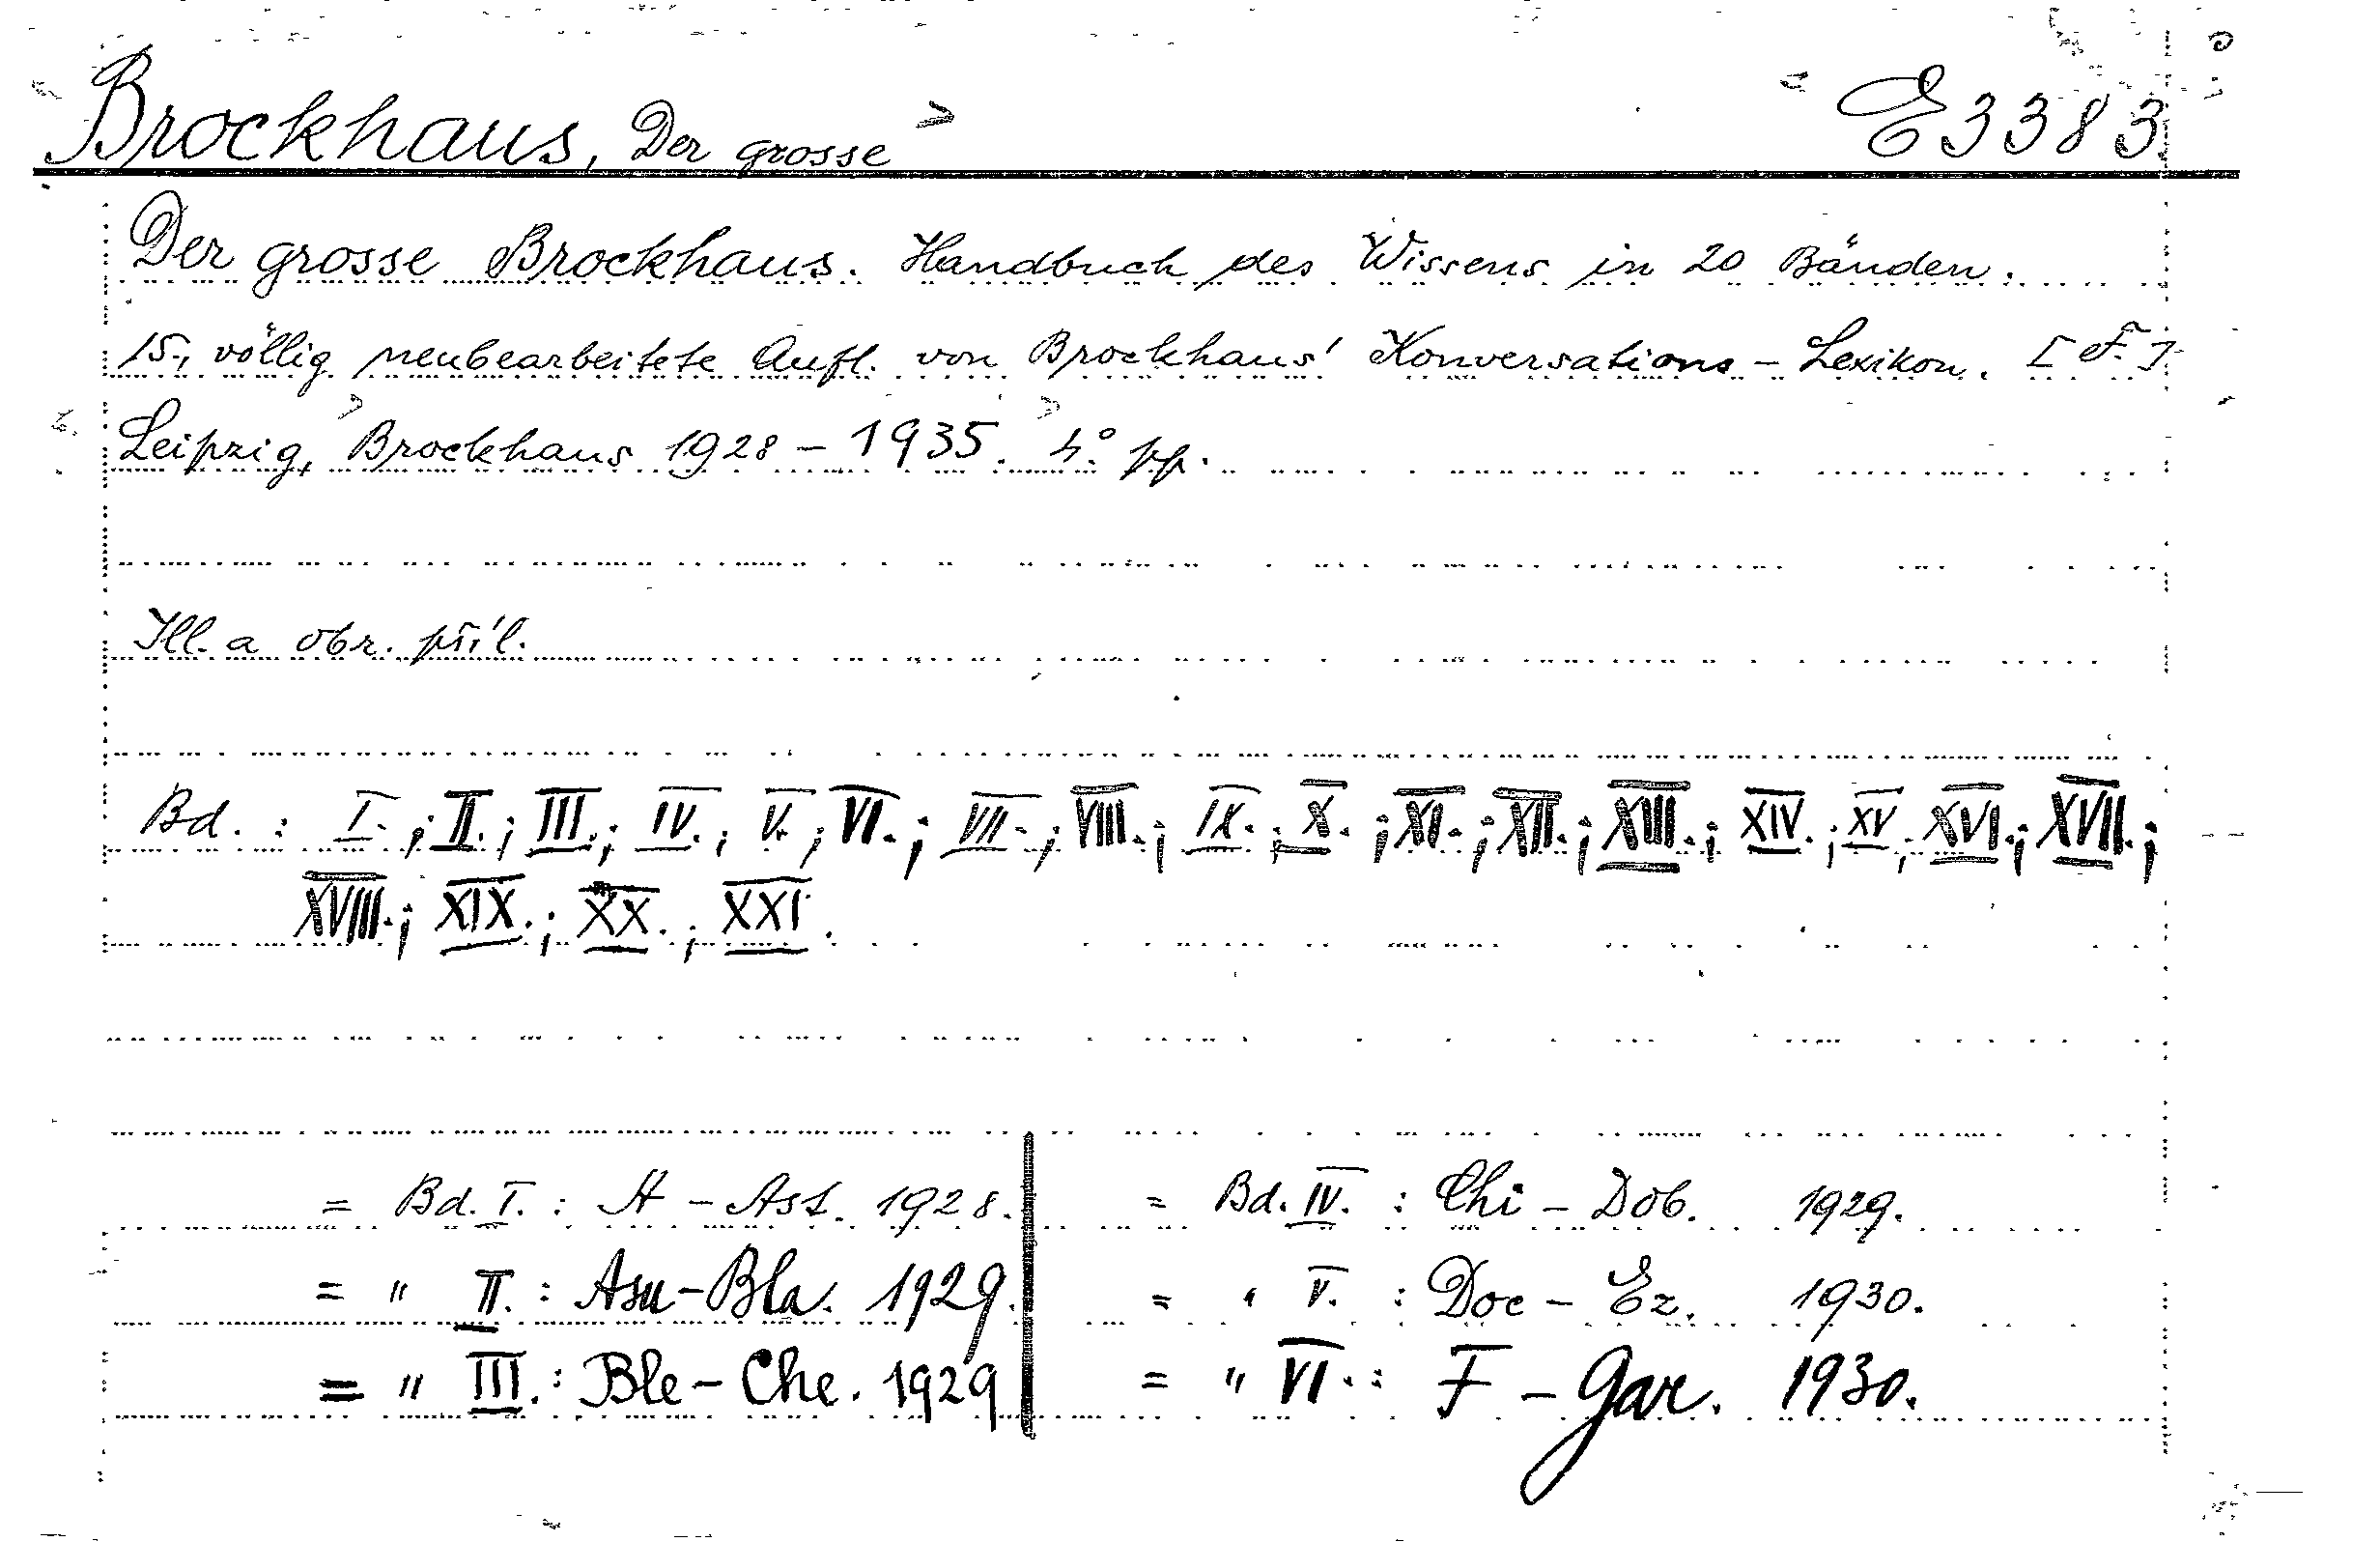 Brockhaus, Der grosse E3383.
Der grosse Brockhaus. Handbuch des Wissens in 20 Bänden.
15., völlig neubearbeitete Aufl. von Brockhaus' Konversations-Lexikon. [F.]
Leipzig, Brockhaus 1928-1935. 4° pp.
Ill. a obr. příl.
Bd.: I.; II.; III.; IV.; V.; VI.; VII.; VIII.; IX.; X.; XI.; XII.; XIII.; XIV.; XV.; XVI.; XVII.;
XVIII.; XIX.; XX.; XXI.
= Bd. I.: A - Ast. 1928. = Bd. IV.: Chi - Dob. 1929.
= " II.: Asu-Bla. 1929. = " V.: Doc - Ez. 1930.
= " III.: Ble-Che. 1929 = " VI.: F - Gar. 1930.